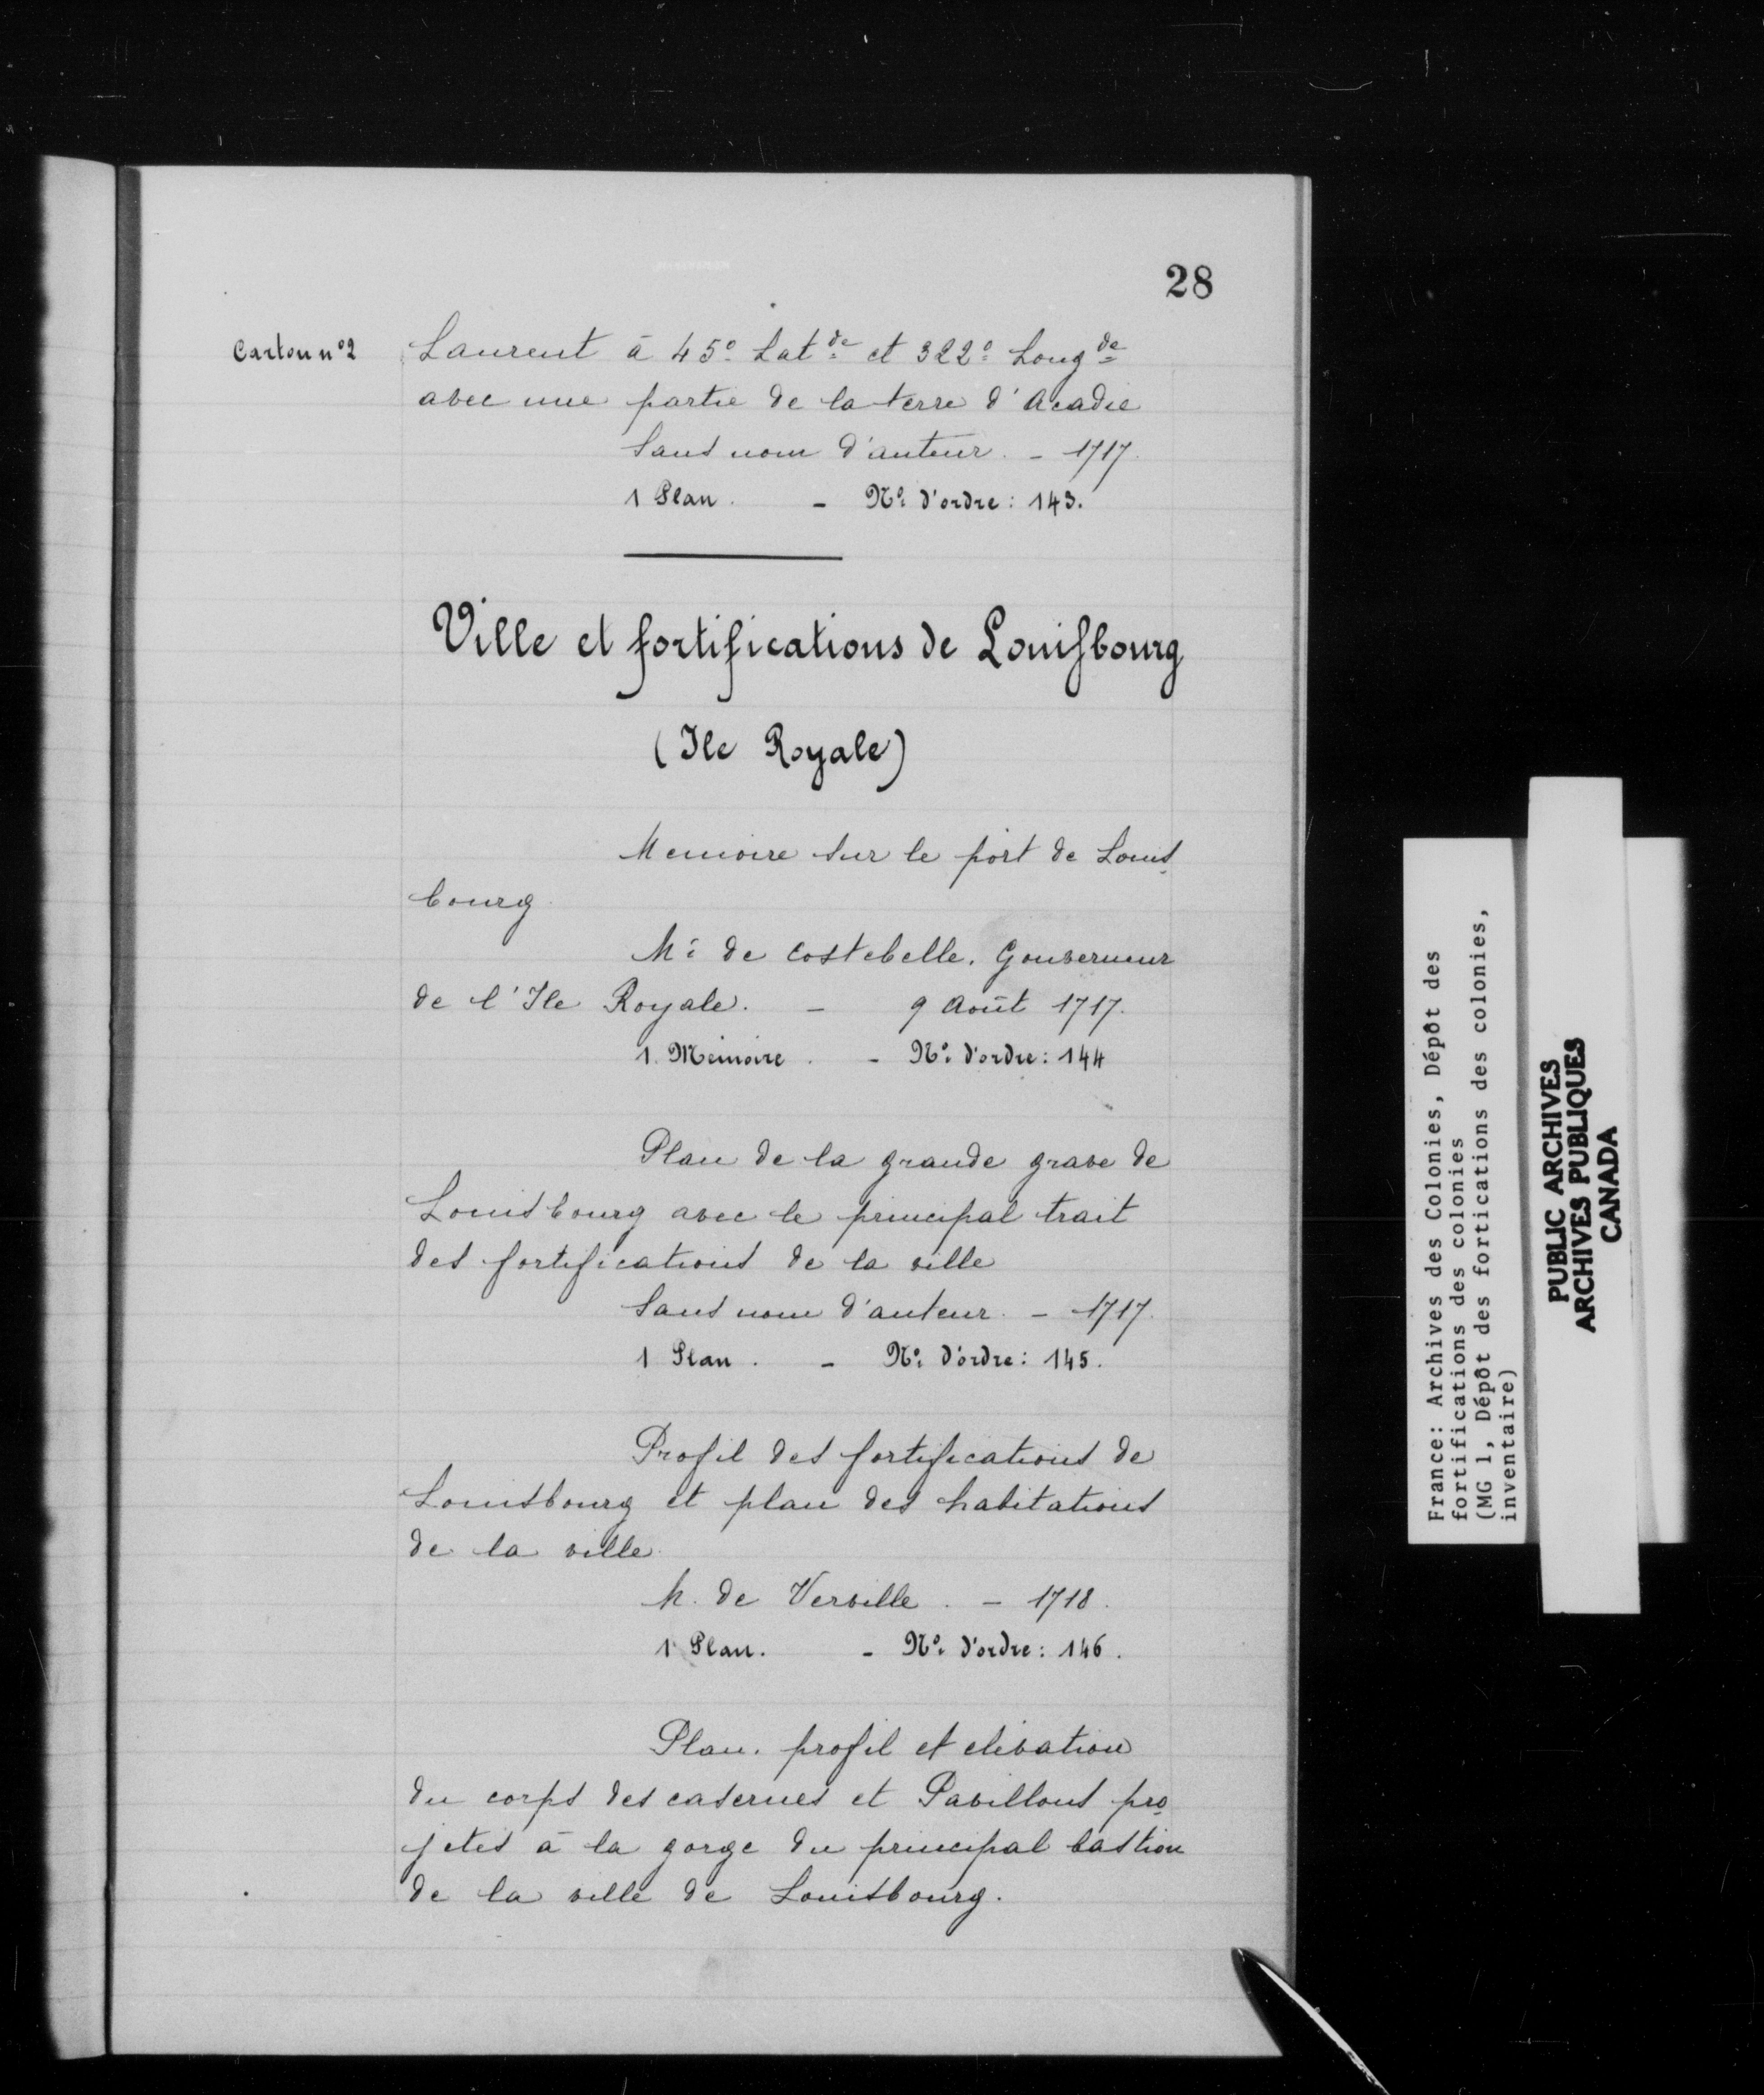 28
Carton n° 2
Laurent à 45° Lat.de et 322° Long.de
avec une partie de la terre d'Acadie
Sans nom d'auteur. - 1717.
1 Plan. - N° d'ordre : 143.
Ville et fortifications de Louisbourg
(Ile Royale)
Memoire sur le port de Louis-
bourg.
Mr de Costebelle. Gouverneur
de l'Ile Royale. - 9 Août 1717.
1. Mémoire. - N° d'ordre : 144
Plan de la grande grave de
Louisbourg avec le principal trait
des fortifications de la ville
Sans nom d'auteur. - 1717.
1 Plan. - N° d'ordre : 145.
Profil des fortifications de
Louisbourg et plan des habitations
de la ville.
M. de Verville. - 1718.
1 Plan. - N° d'ordre : 146.
Plan. profil et elévation
du corps des casernes et Pavillons pro-
jetés à la gorge du principal bastion
de la ville de Louisbourg.
France: Archives des Colonies, Dépôt des
fortifications des colonies
(MG 1, Dépôt des fortications des colonies,
inventaire)
PUBLIC ARCHIVES
ARCHIVES PUBLIQUES
CANADA